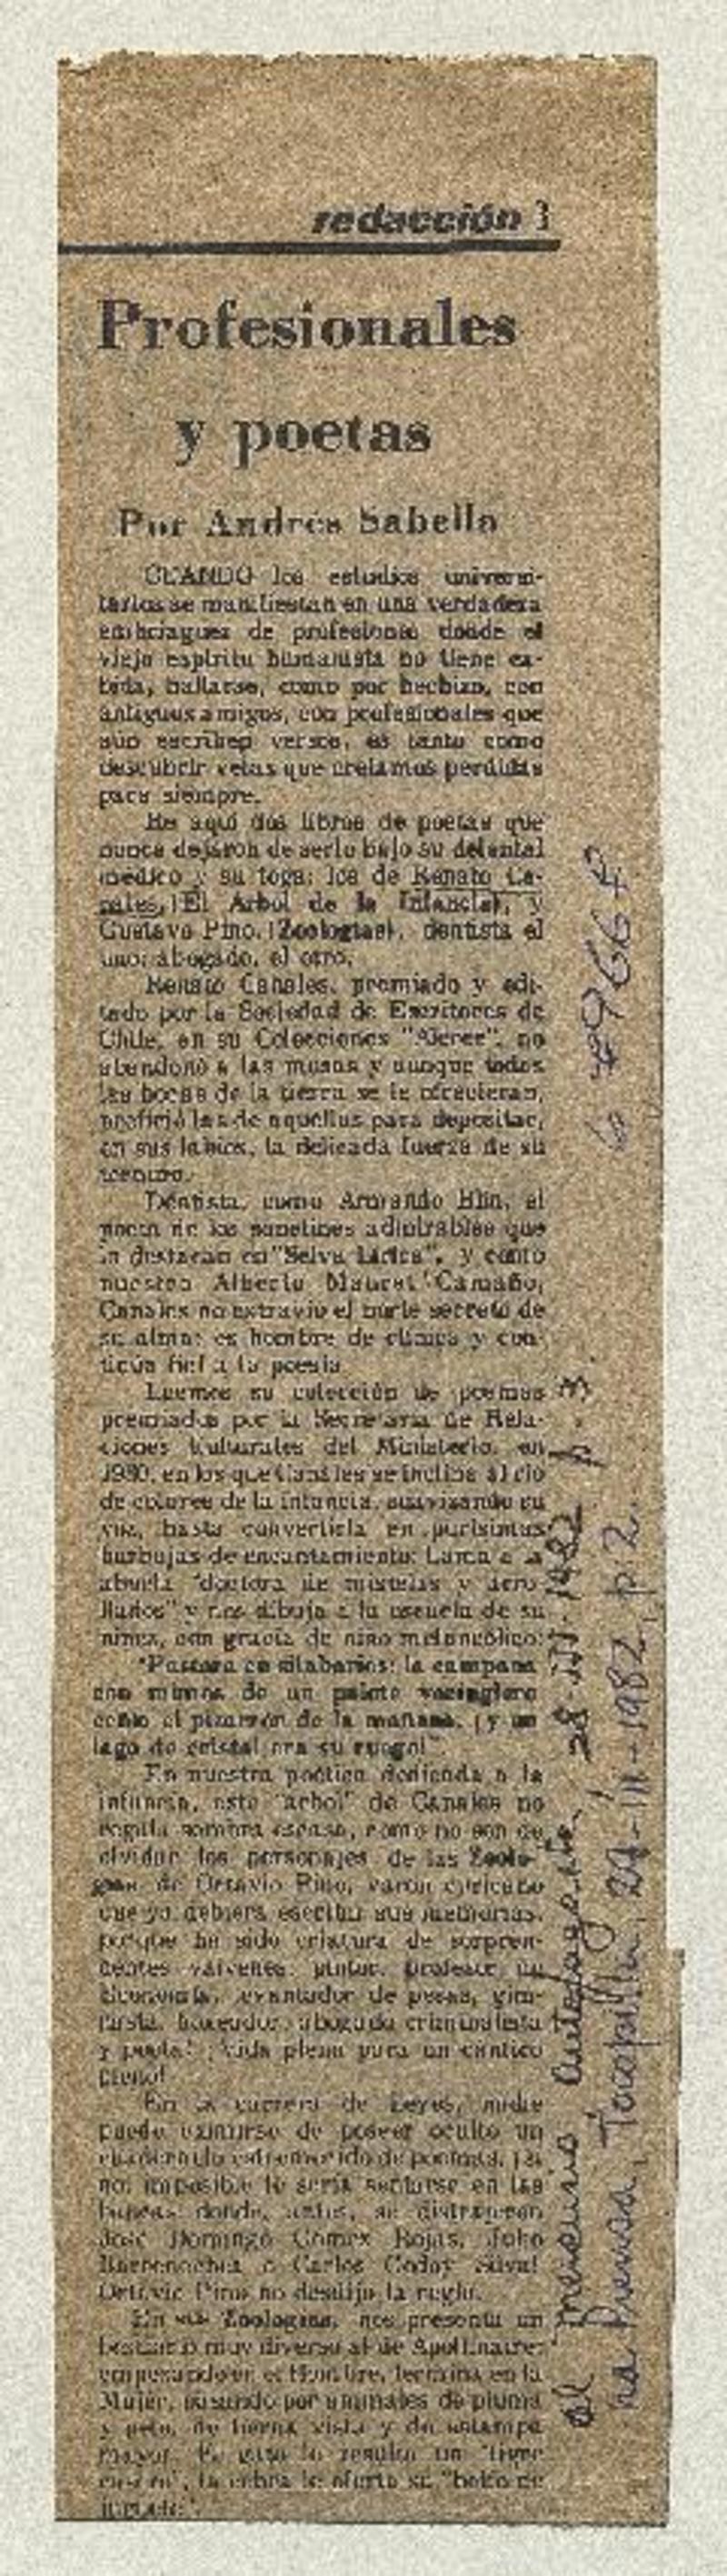 redacción 3
Profesionales
y poetas
Por Andrés Sabella
CUANDO los estudios universi-
tarios se manifiestan en una verdadera
embriaguez de profesiones donde el
viejo espíritu humanista no tiene ca-
bida, hallarse, como por hechizo, con
antiguos amigos, con profesionales que
aún escriben versos, es tanto como
descubrir vetas que creíamos perdidas
para siempre.
He aquí dos libros de poetas que
nunca dejaron de serlo bajo su delantal
médico y su toga: los de Renato Ca-
nales, (El Arbol de la Infancia), y
Gustavo Pino, (Zoologías), dentista el
uno; abogado, el otro.
Renato Canales, premiado y edi-
tado por la Sociedad de Escritores de
Chile, en su Colecciones "Alerce", no
abandonó a las musas y aunque todas
las bocas de la tierra se le ofrecieran,
prefirió las de aquellas para depositar,
en sus labios, la delicada fuerza de su
ternura.
Dentista, como Armando Blin, el
poeta de los sonetines admirables que
lo destacan en "Selva Lírica", y como
nuestro Alberto Mauret Camaño,
Canales no extravió el norte secreto de
su alma: es hombre de clínica y con-
tinúa fiel a la poesía.
Leemos su colección de poemas
premiados por la Secretaría de Rela-
ciones Culturales del Ministerio, en
1980, en los que Canales se inclina al río
de colores de la infancia, suavizando su
voz, hasta convertirla en purísimas
burbujas de encantamiento: Llama a la
abuela "doctora de mistelas y arro-
llados" y nos dibuja a la escuela de su
niñez, con gracia de niño melancólico:
"Pastora de silabarios: la campana
con mimos de un palote vocinglero
ceñía el pizarrón de la mañana, ¡y un
lago de cristal era su ruego!".
En nuestra poética dedicada a la
infancia, este "árbol" de Canales no
regala sombra escasa, como no son de
olvidar los personajes de las Zoolo-
gías de Octavio Pino, varón curicano
que ya debiera escribir sus memorias,
porque ha sido criatura de sorpren-
dentes vaivenes: pintor, profesor de
Economía, levantador de pesas, gim-
nasta, boxeador, abogado criminalista
y poeta! ¡Vida plena para un cántico
pleno!
En la carrera de Leyes, nadie
puede eximirse de poseer oculto un
cuadernillo estremecido de poemas, ¡si
no, imposible le sería sentarse en las
bancas donde, antes, se distrajeron
José Domingo Gómez Rojas, Julio
Barrenechea o Carlos Godoy Silva!
Octavio Pino no desdijo la regla.
En sus Zoologías, nos presenta un
bestiario muy diverso al de Apollinaire:
empezando en el Hombre, termina en la
Mujer, pasando por animales de pluma
y pelo, de tierna vista y de estampa
mayor. El gato le resulta un "tigre
casero", la cebra le oferta su
El Mercurio, Antofagasta, 28-III-1982 p. 3.
La Prensa, Tocopilla, 29-III-1982, p. 2.